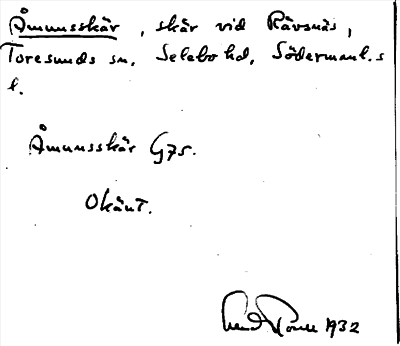 Åmunsskär, skär vid Räfsnäs,
Toresunds sn, Selebo hd, Södermanl.s
l.
Åmunsskär G75.
Okänt.
1932